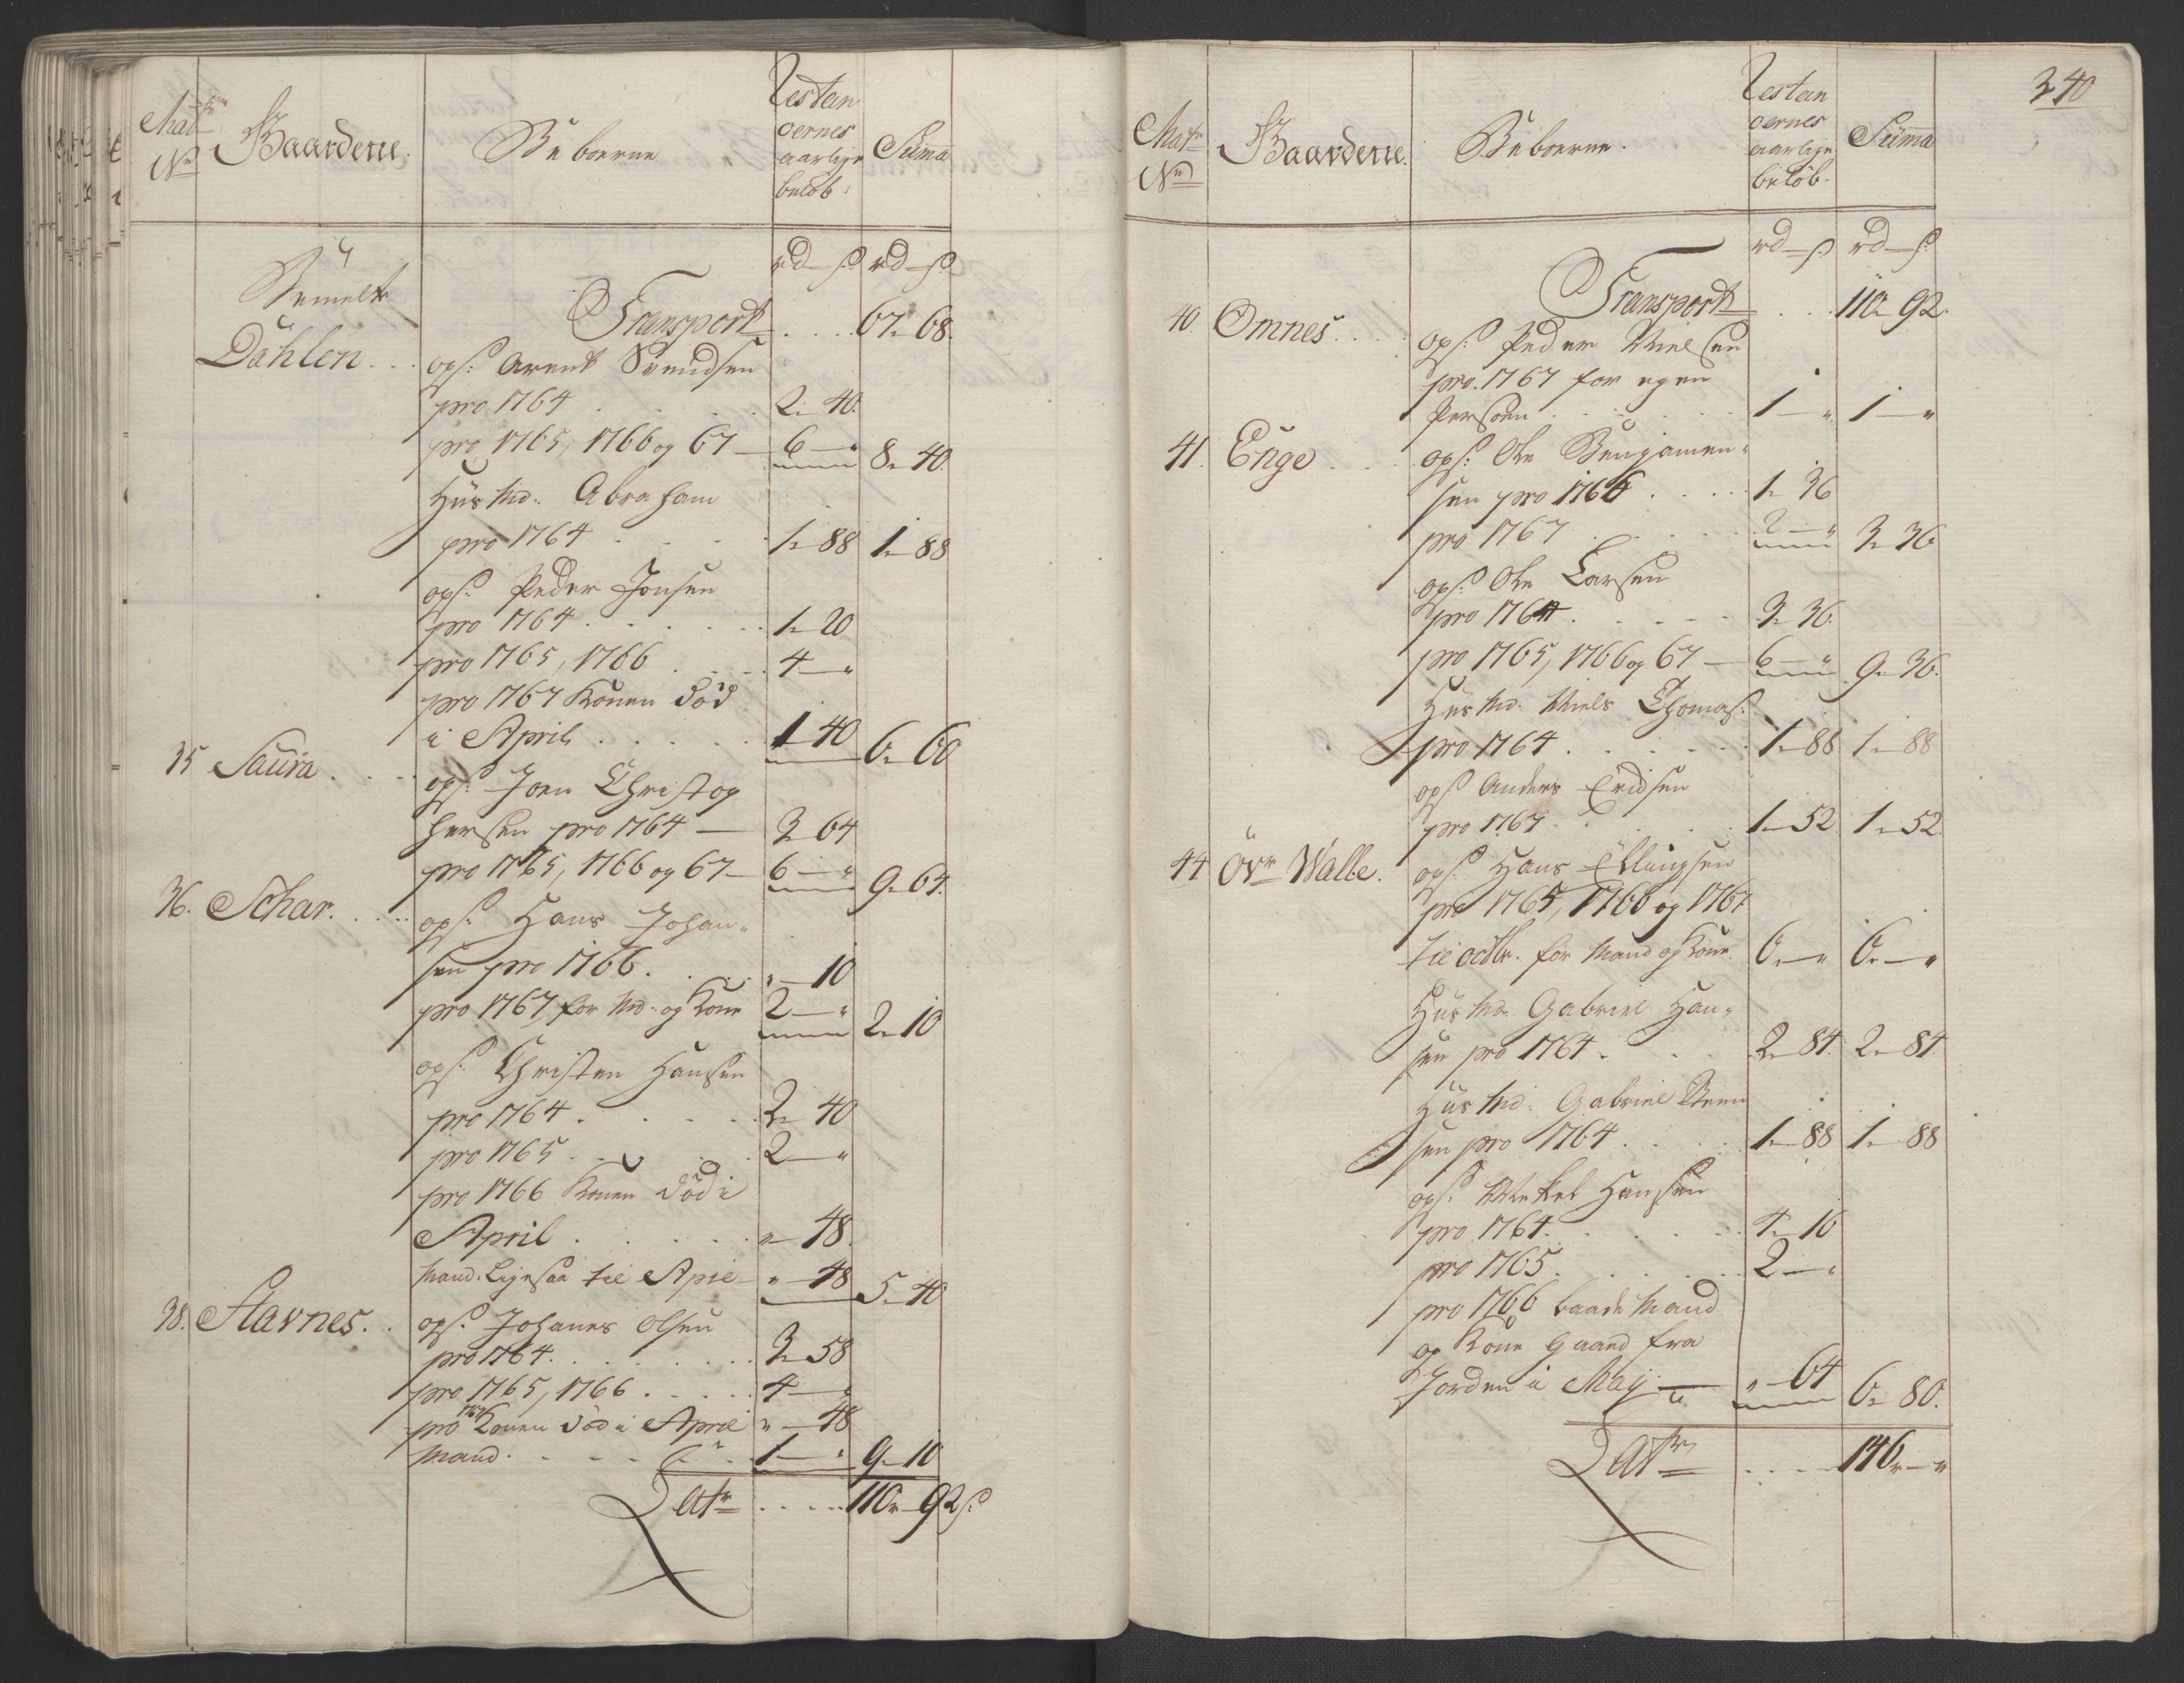 Mat.
No
Gaardene.
Beboerne
Restan
cernes
aarlige
beløb.
Suma
rd — s. rd — s.
Bemelte
Transport . . . . 67 - 68.
Dahlen . . .
ops. Arent Svendsen
pro 1764 . . . . 2 - 40.
pro 1765, 1766 og 67 — 6 — " 8 - 40.
Husmd. Abraham
pro 1764 . . . . 1 - 88 1 - 88
ops. Peder Jonsen
pro 1764 . . . . . 1 - 20
pro 1765, 1766 . . . . 4 — "
pro 1767 Konen død
i April . . . . . 1 - 40 6 - 60
35 Saura . . . .
ops. Joen Christop
hersen pro 1764 — 3 - 64
pro 1765, 1766 og 67 — 6 — " 9 - 64.
36. Schar. . . . .
ops. Hans Johan-
sen pro 1766. . . . " — 10
pro 1767 for Md. og Kone 2 — " 2 - 10
ops. Christen Hansen
pro 1764 . . . . . 2 - 40
pro 1765 . . . . 2 — "
pro 1766 Konen død i
April . . . . . " — 48.
Mand. Ligesaa til Apr — " — 48 5 - 40
38. Stavnes. .
ops. Johanes Olsen
pro 1764. . . . . . 3 - 58
pro 1765, 1766 . . . . 4 — "
pro 1767 Konen død i April " — 48
Mand. . . . . 1 — " 9 - 10
Latr . . . . . 110 - 92 s.
340
Mat.
No
Gaardene.
Beboerne.
Restan
cernes
aarlige
beløb.
Suma
rd — s. rd — s.
Transport . . . 110 - 92.
40. Omnes. . . .
ops. Peder Nielsen
pro. 1767 for egen
Persohn . . . . . . 1 — " 1 — "
41. Enge . . .
ops. Ole Benjamen-
sen pro 1766 . . . . 1 - 36
pro 1767 . . . . . 2 — " 3 - 36
ops. Ole Larsen
pro 1764. . . . . 3 - 36.
pro 1765, 1766 og 67 — 6 — " 9 - 36.
Husmd. Niels Thomas.
pro 1764 . . . . . 1 - 88 1 - 88
ops. Anders
pro 1767 . . . . 1 - 52. 1 - 52.
44 Övr Walle.
ops. Hans Ellingsen
pro 1765, 1766 og 1767
til octbr. for Mand og Kone. 6 — " 6 — "
Husmd. Gabriel Han-
sen pro 1764 . . . 2 - 84. 2 - 84
Husmd. Gabriel
sen pro 1764 . . . . 1 - 88 1 - 88
ops. Mekel Hansen
pro 1764. . . . . . 4 - 16
pro 1765. . . . . 2 — "
pro 1766 baade Mand
og Kone gaaed fra
Jorden i Maij — " — 64 6 - 80.
Latr . . . . 146 — "